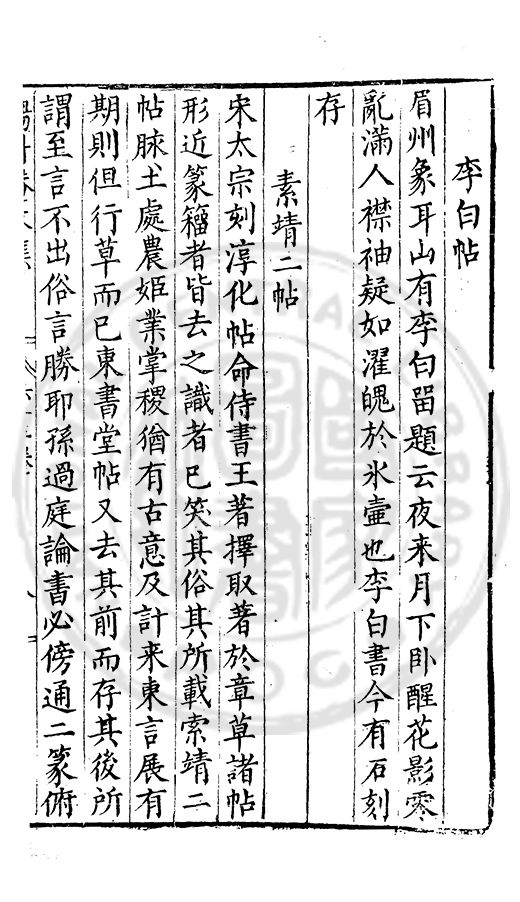 李白帖
眉州象耳山有李白留題云夜来月下卧醒花影零
亂滿人襟袖疑如濯魄於氷壷也李白書今有石刻
存
素靖二帖
宋太宗刻淳化帖命侍書王著擇取著於章草諸帖
形近篆籀者皆去之識者已笑其俗其所載索靖二
帖脉土處農姬業掌稷猶有古意及計来東言展有
期則但行草而已東書堂帖又去其前而存其後所
謂至言不出俗言勝耶孫過庭論書必傍通二篆俯